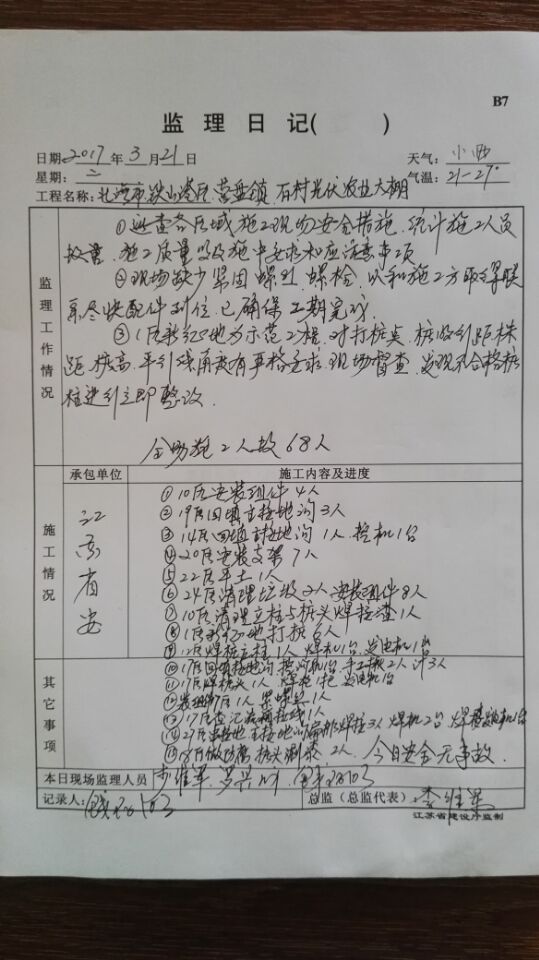 B7
监 理 日 记( )
日期: 2017 年 3 月 21 日 天气: 小雨
星期: 二 气温: 21-27°
工程名称: 营盘镇 石村光伏农业大棚
监理工作情况
①巡查各区域施工现场安全措施,统计施工人员
数量,施工质量以及施工中要求和应注意事项
②现场缺少紧固螺丝,螺栓,以和施工方取得联
系尽快配件到位,已确保工期完成
③1区新场地为示范工程,对打桩点,桩间行距株
距,桩高,平行线角度有严格要求,现场督查,发现不合格桩
桩进行立即整改.
全场施工人数68人
承包单位 施工内容及进度
施工情况
江
苏
省
安
①10区安装组件4人
②19区回填主接地沟3人
③14区回填主接地沟1人,挖机1台
④20区安装支架7人
⑤22区平土1人
⑥24区清理垃圾2人 安装组件8人
⑦10区清理立柱与桩头焊接渣1人
⑧1区新场地打桩6人
⑨12区焊桩立柱1人 焊机1台,发电机1台
其它事项
⑩17区回填接地沟 挖机1台 手工 2人 计3人
⑪17区焊桩头1人 焊机1把 发电机1台
⑬17区 1人
⑭27区 主接地 焊接3人 焊机2台
⑮18区做防腐 桩头刷漆 2人. 今日安全无事故.
本日现场监理人员
记录人: 总监(总监代表):
江苏省建设厅监制